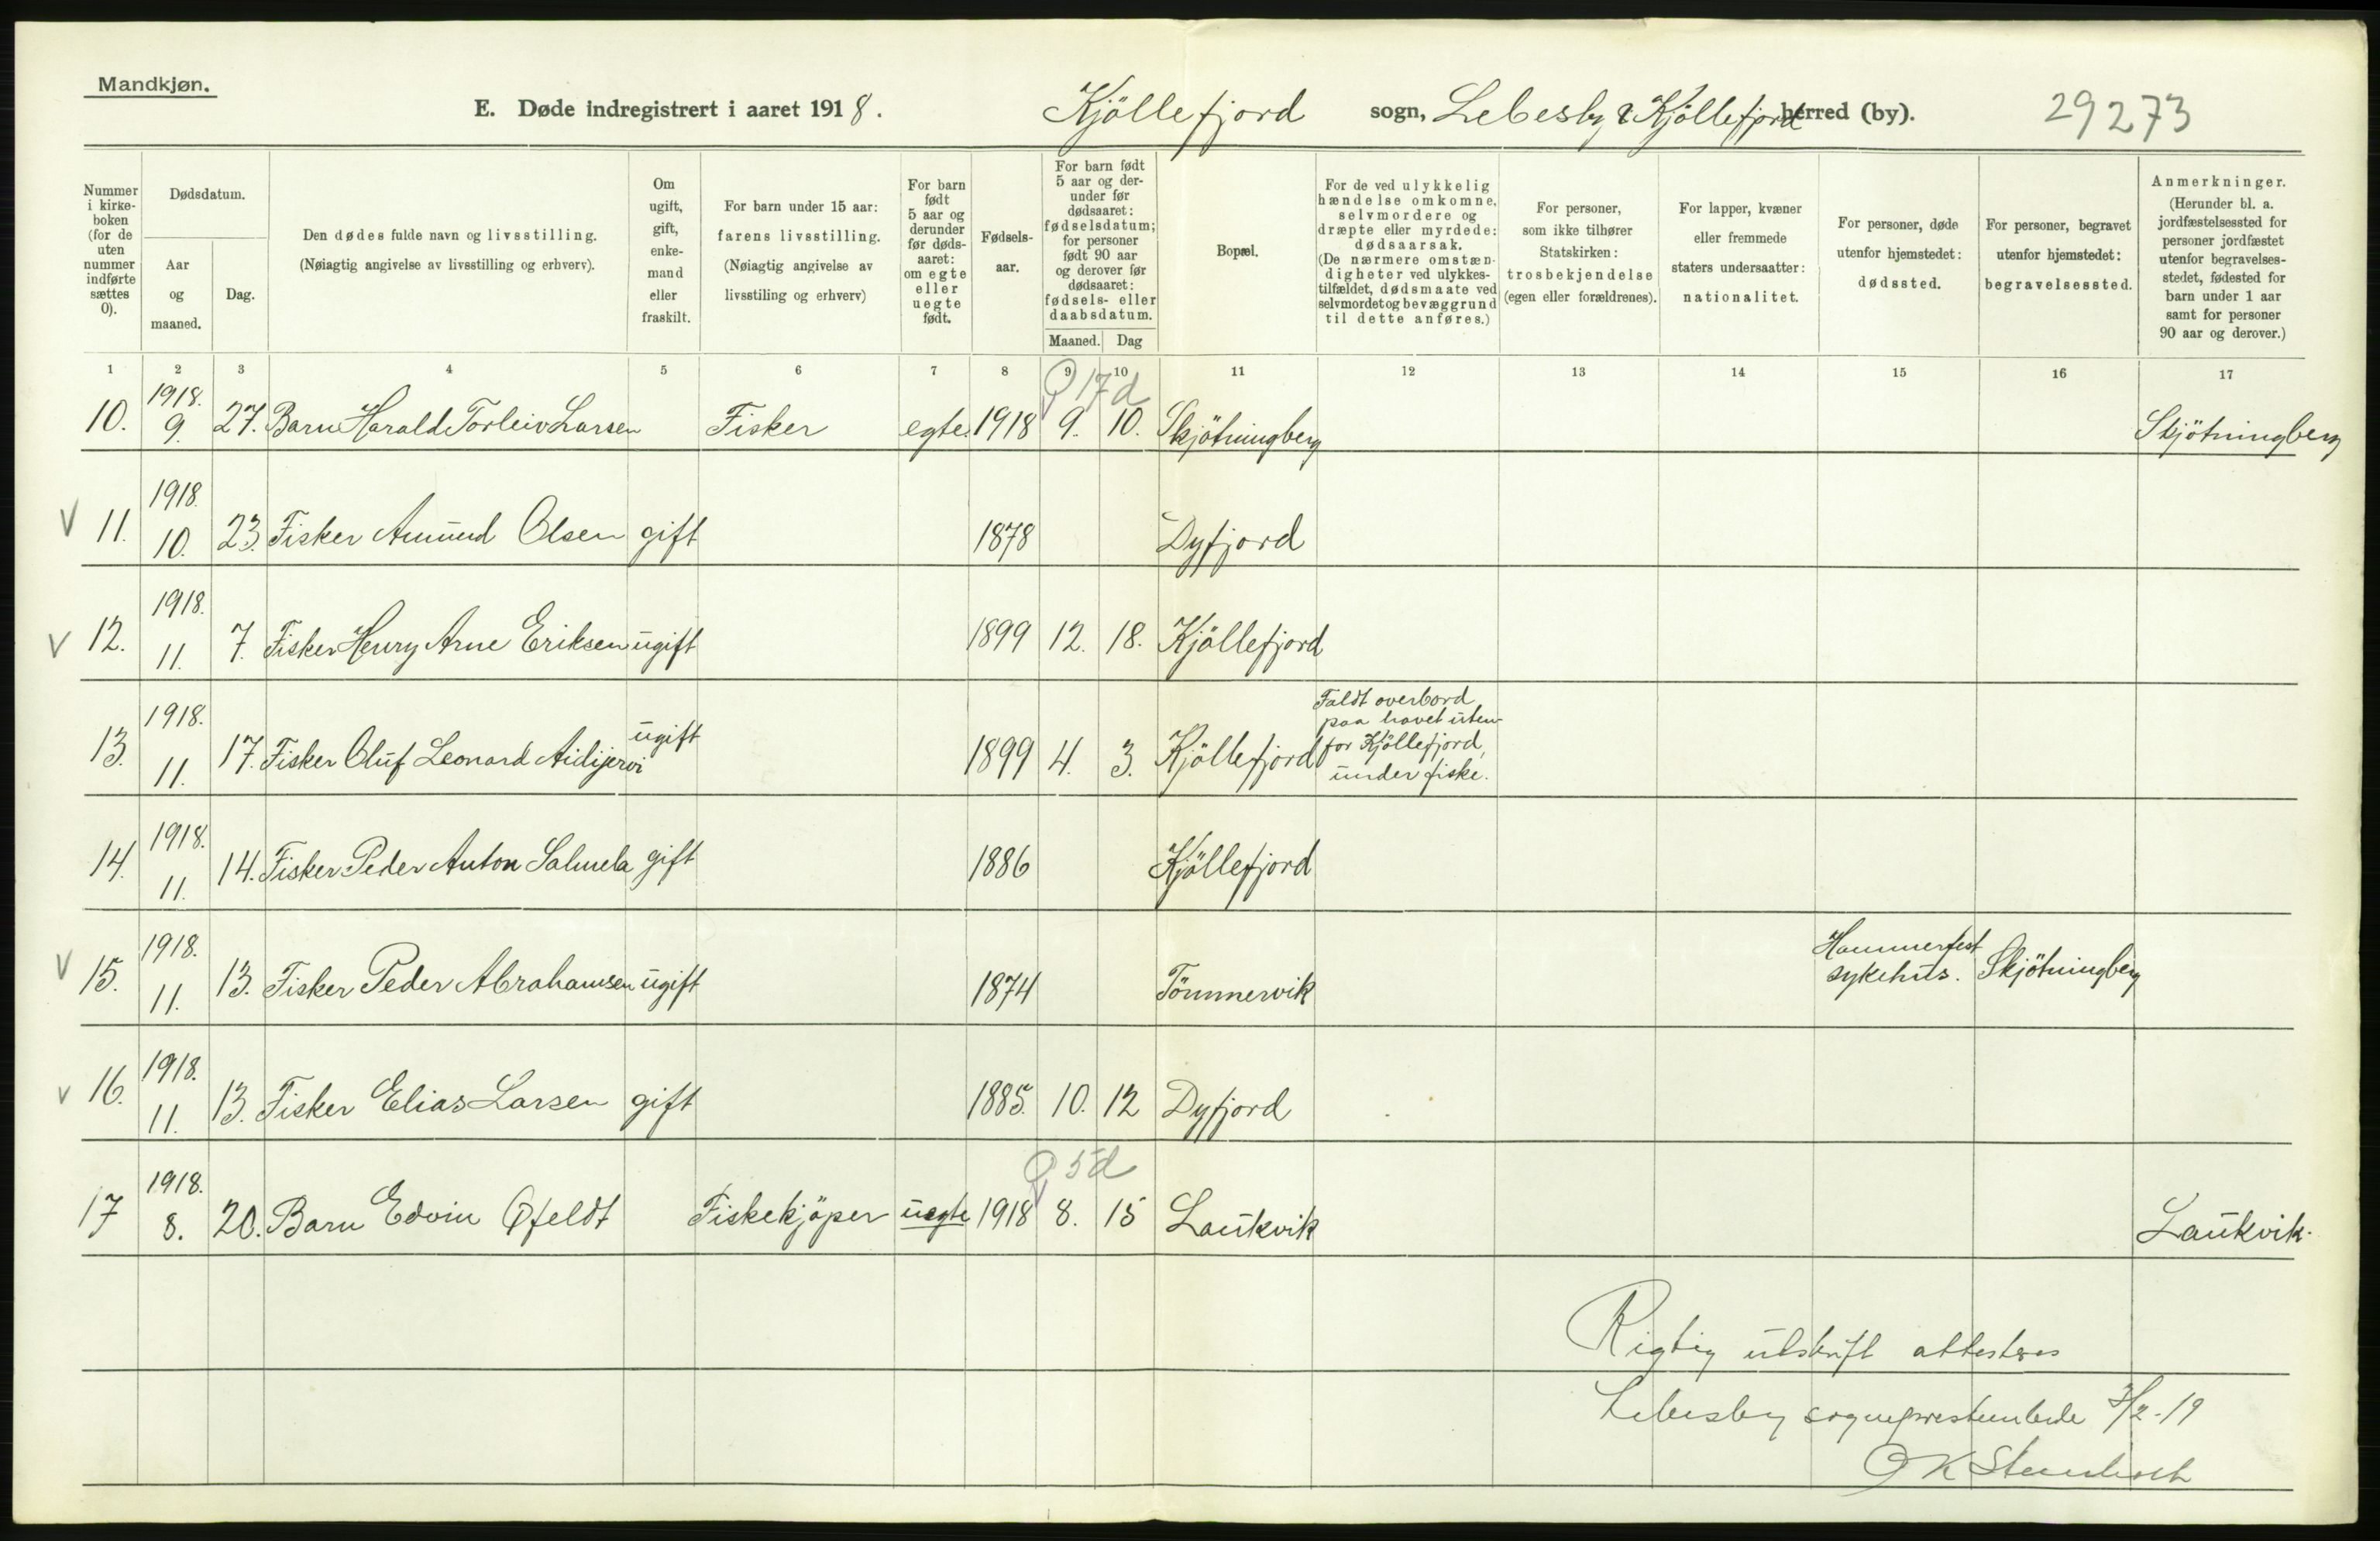 Mandkjøn.
E. Døde indregistrert i aaret 1918. Kjöllefjord sogn, Lebesby & Kjöllefjord herred (by). 29273
Nummer i kirke-boken (for de uten nummer indførte sættes 0).
Dødsdatum.
Aar og maaned.
Dag.
Den dødes fulde navn og livsstilling.
(Nøiagtig angivelse av livsstilling og erhverv).
Om ugift, gift, enke-mand eller fraskilt.
For barn under 15 aar: farens livsstilling. (Nøiagtig angivelse av livsstiling og erhverv)
For barn født 5 aar og derunder før døds-aaret: om egte eller uegte født.
Fødsels-aar.
For barn født 5 aar og der-under før dødsaaret: fødselsdatum; for personer født 90 aar og derover før dødsaaret: fødsels- eller daabsdatum.
Maaned. Dag
Bopæl.
For de ved ulykkelig hændelse omkomne, selvmordere og dræpte eller myrdede: dødsaarsak. (De nærmere omstæn-digheter ved ulykkes-tilfældet, dødsmaate ved selvmordet og bevæggrund til dette anføres.)
For personer, som ikke tilhører Statskirken: trosbekjendelse (egen eller forældrenes).
For lapper, kvæner eller fremmede staters undersaatter: nationalitet.
For personer, døde utenfor hjemstedet: dødssted.
For personer, begravet utenfor hjemstedet: begravelsessted.
Anmerkninger. (Herunder bl. a. jordfæstelsessted for personer jordfæstet utenfor begravelses-stedet, fødested for barn under 1 aar samt for personer 90 aar og derover.)
1 2 3 4 5 6 7 8 9 10 11 12 13 14 15 16 17
17 d
10. 1918. 9. 27. Barn Harald Torleiv Larsen Fisker egte. 1918 9. 10. Skjötningberg Skjötningberg
V 11. 1918. 10. 23. Fisker Amund Olsen gift 1878 Dyfjord
V 12. 1918. 11. 7. Fisker Henry Arne Eriksen ugift 1899 12. 18. Kjöllefjord
13. 1918. 11. 17. Fisker Oluf Leonard Aidijervi ugift 1899 4. 3. Kjöllefjord Faldt overbord
paa havet uten-
for Kjöllefjord,
under fiske.
14. 1918. 11. 14. Fisker Peder Anton Salmela gift 1886 Kjöllefjord
V 15. 1918. 11. 13. Fisker Peder Abrahamsen ugift 1874 Tömmervik Hammerfest sykehus. Skjötningberg
V 16. 1918. 11. 13. Fisker Elias Larsen gift 1885. 10. 12 Dyfjord
5 d
17 1918. 8. 20. Barn Edvin Qfeldt Fiskekjöper uegte 1918 8. 15 Laukvik Laukvik.
Rigtig utskrift attesteres
Lebesby sogneprestembede 3/2-19
O K